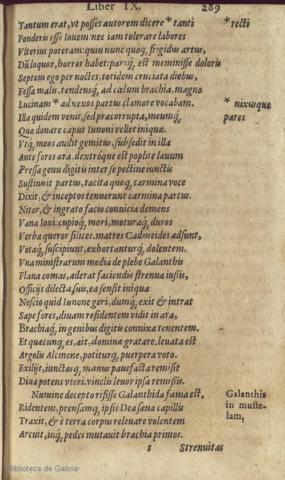 Liber IX. 289
Tantum erat, vt posses autorem dicere * tanti * recti
Ponderis esse Iouem nec iam tolerare labores
Vlterius poteram: quin nunc quoq; frigidus artus,
Dũ loquor, horror habet: parsq; est meminisse doloris
Septem ego per noctes, totidem cruciata diebus,
Fessa malis, tendensq; ad cœlum brachia, magno
Lucinam * ad nexos partus clamore vocabam. * nixusque pares
Illa quidem venit, sed præcorrupta, meumq;
Quæ donare caput Iunoni vellet iniquæ.
Vtq; meos audit gemitus, subsedit in illa
Ante fores ara, dextróque est poplite læuum
Pressa genu digitis inter se pectine iunctis
Sustinuit partus, tacita quoq; carmina voce
Dixit, & inceptos tenuerunt carmina partus.
Nitor, & ingrato facio conuicia demens
Vana Ioui: cupioq; mori, moturaq; duros
Verba queror silices. matres Cadmeides adsunt,
Votaq; suscipiunt, exhortanturq; dolentem.
Vna ministrarum media de plebe Galanthis
Flaua comas, aderat faciendis strenua iussis,
Officijs dilecta suis, ea sensit iniqua
Nescio quid Iunone geri. dumq; exit & intrat
Sæpe fores, diuam residentem vidit in ara,
Brachiaq; in genibus digitis connixa tenentem.
Et quecunq; es, ait, dominæ gratare, leuata est
Argolis Alcmene, potiturq; puerpera voto.
Exiluit, iunctasq; manus pauefacta remisit
Diua potens vteri. vinclis leuor ipsa remissis.
Numine decepto risisse Galanthida fama est. Galanthis
Ridentem, prensamq; ipsis Dea sæua capillis in muste-
Traxit, & è terra corpus releuare volentem lam,
Arcuit, inq; pedes mutauit brachia primos.
t Strenuitas
Biblioteca de Galicia